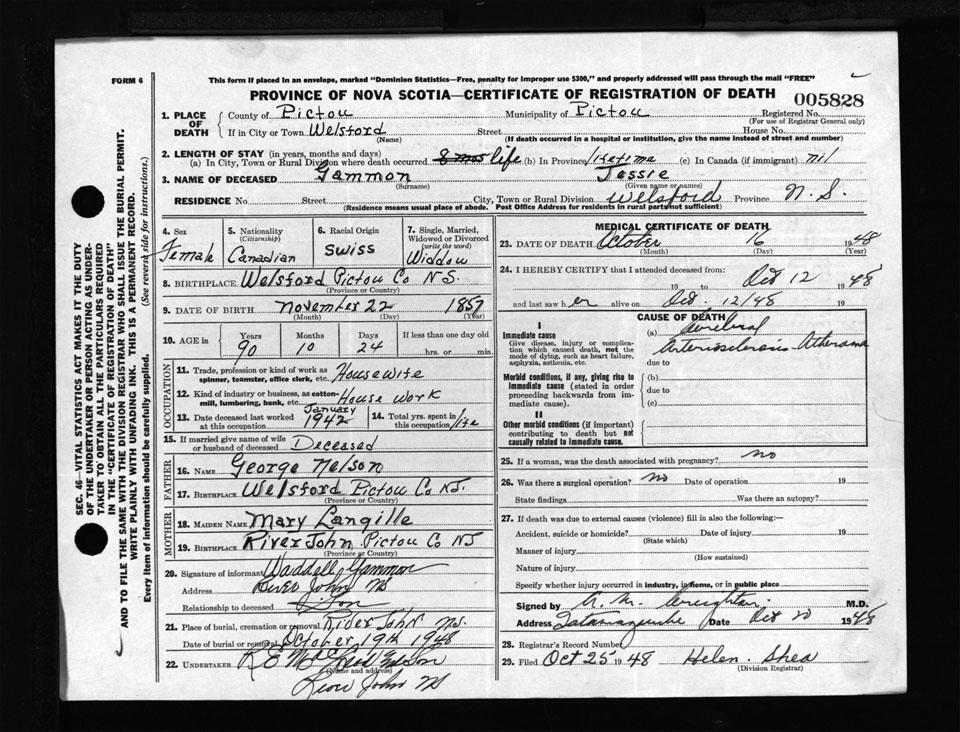 FORM 6
This form if placed in an envelope, marked "Dominion Statistics—Free, penalty for improper use $300," and properly addressed will pass through the mail "FREE"
PROVINCE OF NOVA SCOTIA—CERTIFICATE OF REGISTRATION OF DEATH
005828
1. PLACE OF DEATH
County of Pictou Municipality of Pictou Registered No.
(For use of Registrar General only)
If in City or Town Welsford Street House No.
(Name) (If death occurred in a hospital or institution, give the name instead of street and number)
2. LENGTH OF STAY (in years, months and days)
(a) In City, Town or Rural Division where death occurred 8 mos life (b) In Province lifetime (c) In Canada (if immigrant) nil
3. NAME OF DECEASED Gammon Jessie
(Surname) (Given name or names)
RESIDENCE No. Street City, Town or Rural Division Welsford Province N. S.
(Residence means usual place of abode. Post Office Address for residents in rural parts not sufficient)
4. Sex Female
5. Nationality (Citizenship) Canadian
6. Racial Origin Swiss
7. Single, Married, Widowed or Divorced (write the word) Widdow
8. BIRTHPLACE Welsford Pictou Co N.S.
(Province or Country)
9. DATE OF BIRTH November 22 1857
(Month) (Day) (Year)
10. AGE in Years Months Days If less than one day old
90 10 24 hrs. or min.
OCCUPATION
11. Trade, profession or kind of work as spinner, teamster, office clerk, etc. Housewife
12. Kind of industry or business, as cotton-mill, lumbering, bank, etc. House Work
13. Date deceased last worked at this occupation January 1942
14. Total yrs. spent in this occupation life
15. If married give name of wife or husband of deceased Deceased
FATHER
16. NAME George Nelson
17. BIRTHPLACE Welsford Pictou Co NS.
(Province or Country)
MOTHER
18. MAIDEN NAME Mary Langille
19. BIRTHPLACE River John Pictou Co NS
(Province or Country)
20. Signature of informant Waddell Gammon
Address River John NS
Relationship to deceased Son
21. Place of burial, cremation or removal River John N.S.
Date of burial or removal October 19th 1948
22. UNDERTAKER R E
(Name and address)
River John NS
MEDICAL CERTIFICATE OF DEATH
23. DATE OF DEATH October 16 1948
(Month) (Day)
24. I HEREBY CERTIFY that I attended deceased from:
19 to Oct 12 1948
and last saw her alive on Oct. 12/48 19
CAUSE OF DEATH
I
Immediate cause
Give disease, injury or complication which caused death, not the mode of dying, such as heart failure, asphyxia, asthenia, etc.
(a) Cerebral
Arteriosclerosis Atheroma
due to
Morbid conditions, if any, giving rise to immediate cause (stated in order proceeding backwards from immediate cause).
(b)
due to
(c)
II
Other morbid conditions (if important) contributing to death but not causally related to immediate cause.
25. If a woman, was the death associated with pregnancy? no
26. Was there a surgical operation? no Date of operation 19
State findings Was there an autopsy?
27. If death was due to external causes (violence) fill in also the following:—
Accident, suicide or homicide? Date of injury 19
(State which)
Manner of injury
(How sustained)
Nature of injury
Specify whether injury occurred in industry, in home, or in public place
Signed by A. M. Creighton M.D.
Address Tatamagouche Date Oct 20 1948
28. Registrar's Record Number
29. Filed Oct 25 1948 Helen Shea
(Division Registrar)
SEC. 46—VITAL STATISTICS ACT MAKES IT THE DUTY
OF THE UNDERTAKER OR PERSON ACTING AS UNDER-
TAKER TO OBTAIN ALL THE PARTICULARS REQUIRED
IN THE "CERTIFICATE OF REGISTRATION OF DEATH"
AND TO FILE THE SAME WITH THE DIVISION REGISTRAR WHO SHALL ISSUE THE BURIAL PERMIT.
WRITE PLAINLY WITH UNFADING INK. THIS IS A PERMANENT RECORD.
Every item of information should be carefully supplied. (See reverse side for instructions.)